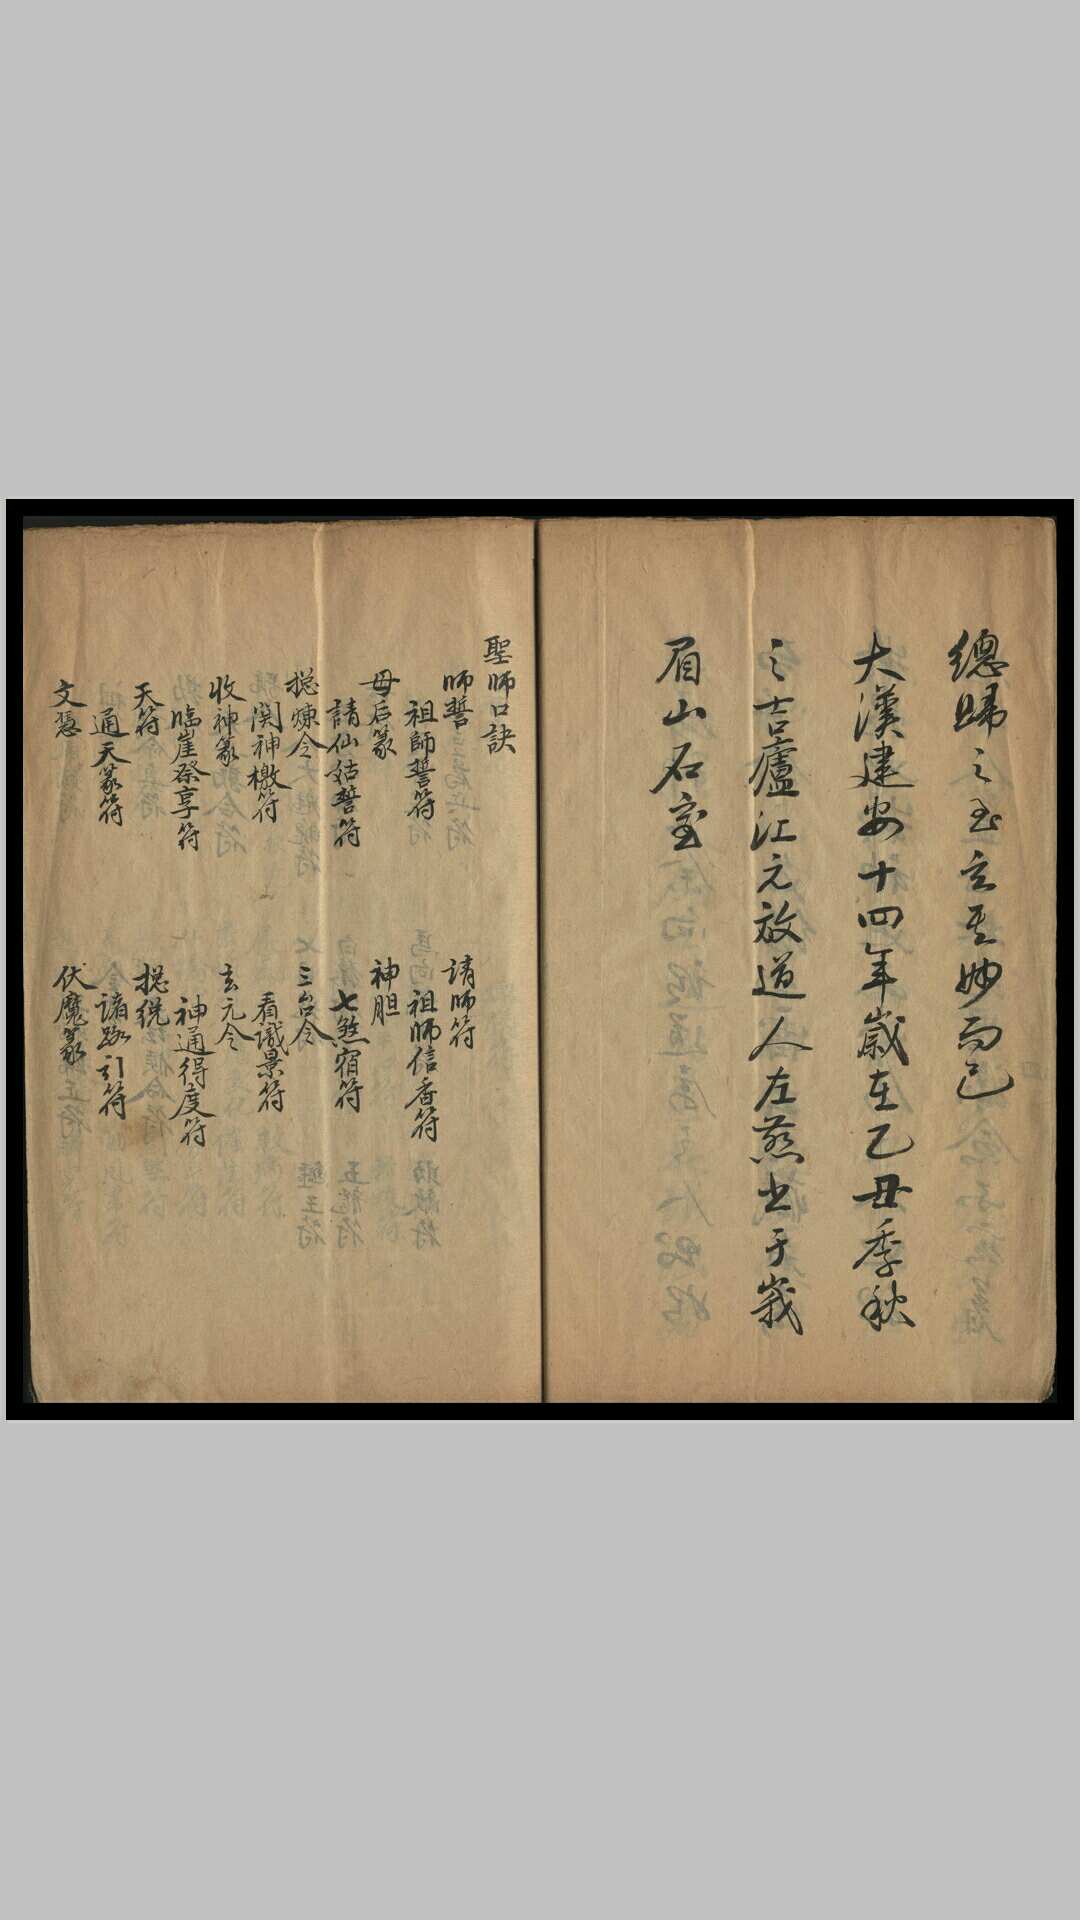 總歸之至玄至妙而已
大漢建安十四年歲在乙丑季秋
之吉廬江元放道人左慈書于峩
眉山石室
聖師口訣
師誓
請師符
祖師誓符
祖師信香符
母后篆
神胆
請仙姑誓符
七煞宿符
摠煉令
三台令
関神檄符
看識景符
收神篆
玄元令
臨崖祭享符
神通得度符
天符
摠統
通天篆符
諸路引符
文憑
伏魔篆